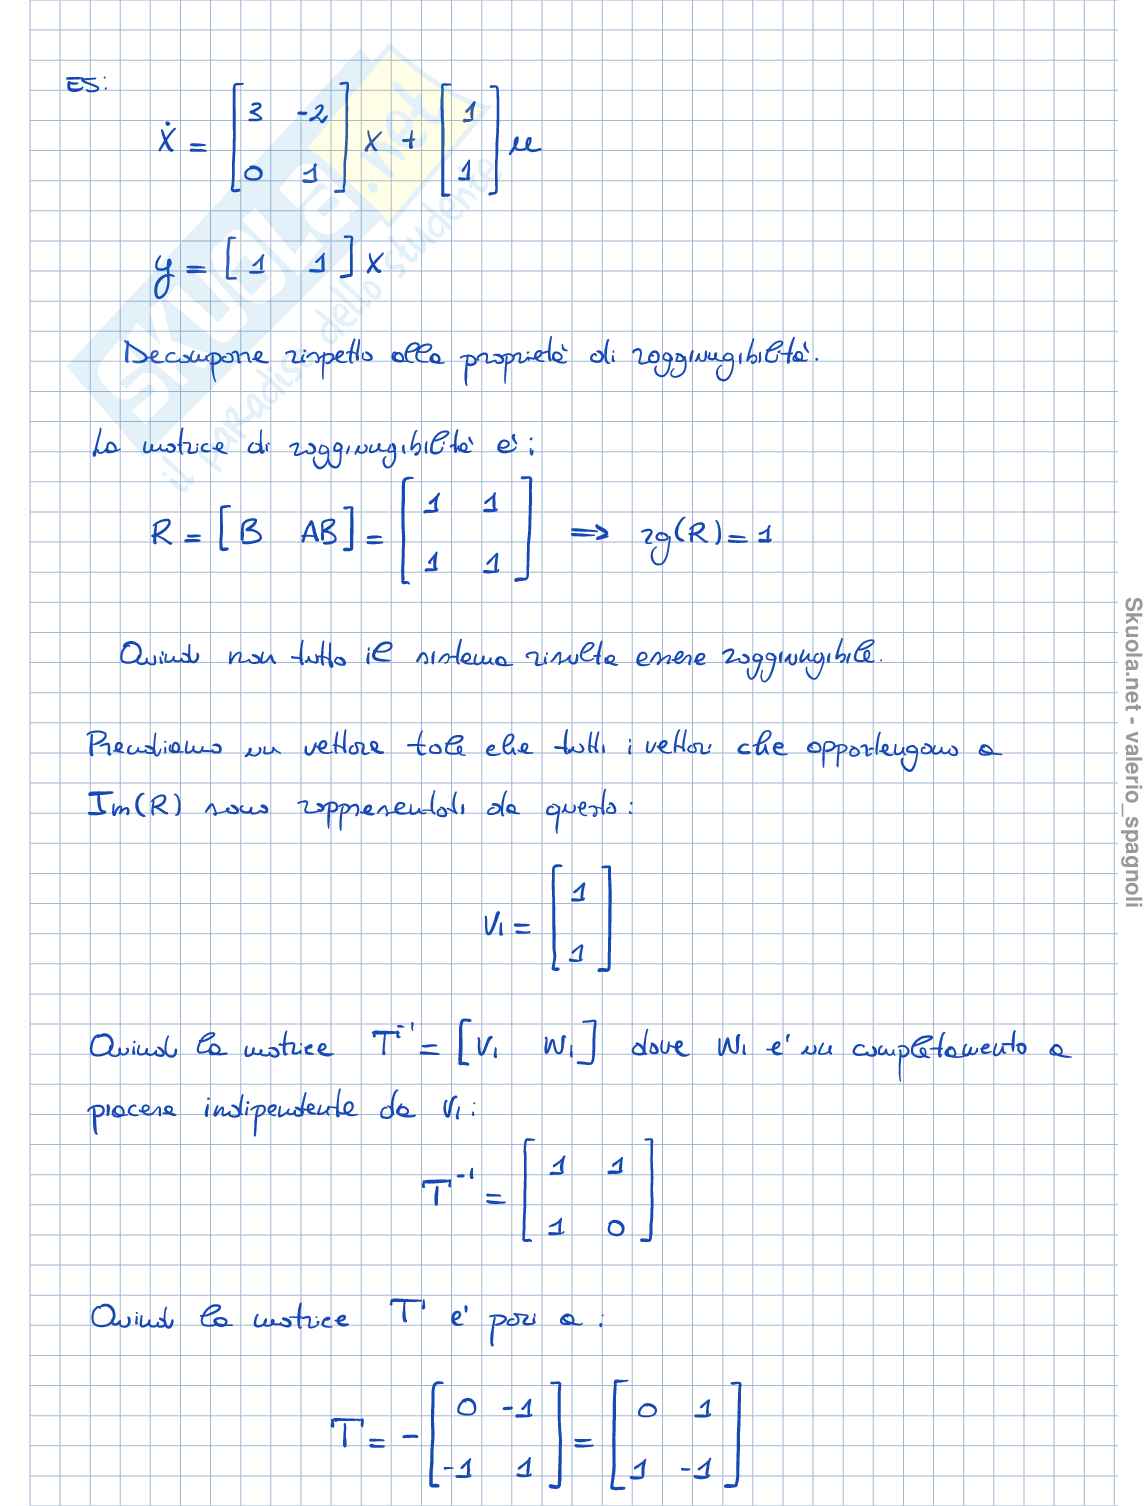 ES:
ẋ = [3 -2; 0 1] x + [1; 1] u
y = [1 1] x
Decomporre rispetto alla proprietà di raggiungibilità.
La matrice di raggiungibilità è:
R = [B AB] = [1 1; 1 1] ⇒ rg(R) = 1
Quindi non tutto il sistema risulta essere raggiungibile.
Prendiamo un vettore tale che tutti i vettori che appartengono a
Im(R) sono rappresentati da questo:
V1 = [1; 1]
Quindi la matrice T⁻¹ = [V1 W1] dove W1 è un completamento a
piacere indipendente da V1:
T⁻¹ = [1 1; 1 0]
Quindi la matrice T è pari a:
T = -[0 -1; -1 1] = [0 1; 1 -1]
SKUOLA.net
il paradiso dello studente
Skuola.net - valerio_spagnoli